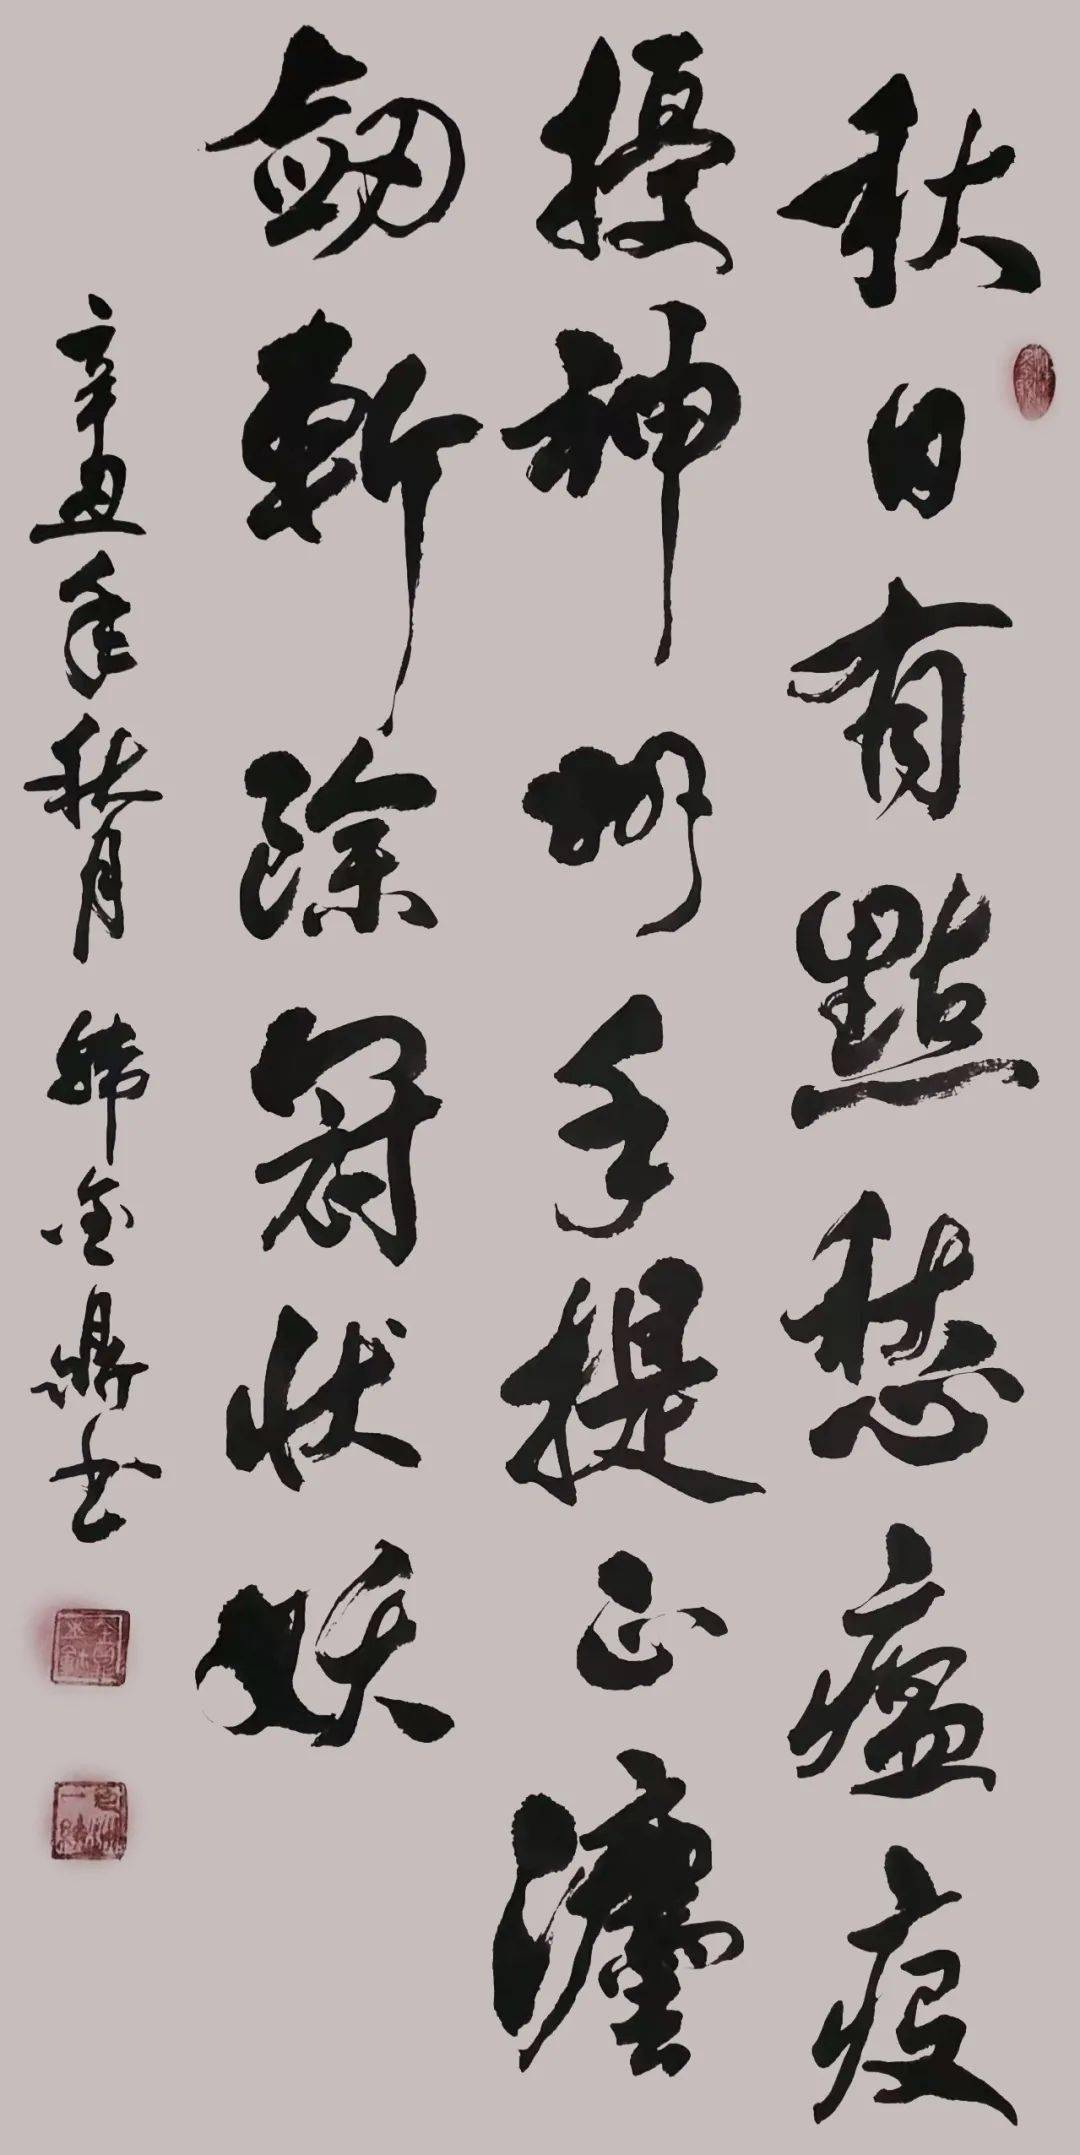 秋日有點愁瘟疫
擾神州手提正灋
劍斬除冠狀妖
辛丑年秋月韓金鼎书